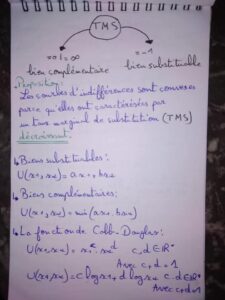 TMS
x=0|∞
=-1
bien complémentaire
bien substituable
• Proposition:
Les courbes d'indifférences sont convexes
parce qu'elles ont caractérisées par
un taux marginal de substitution (TMS)
décroissant.
Biens substituables:
U(x1,x2) = ax1+bx2
Biens complémentaires:
U(x1,x2) = min(ax1,bx2)
La fonction de Cobb-Douglas:
U(x1,x2) = x1^c x2^d c,d ∈ IR+
Avec c+d=1
U(x1,x2) = c log x1 + d log x2 c,d ∈ IR+
Avec c+d=1